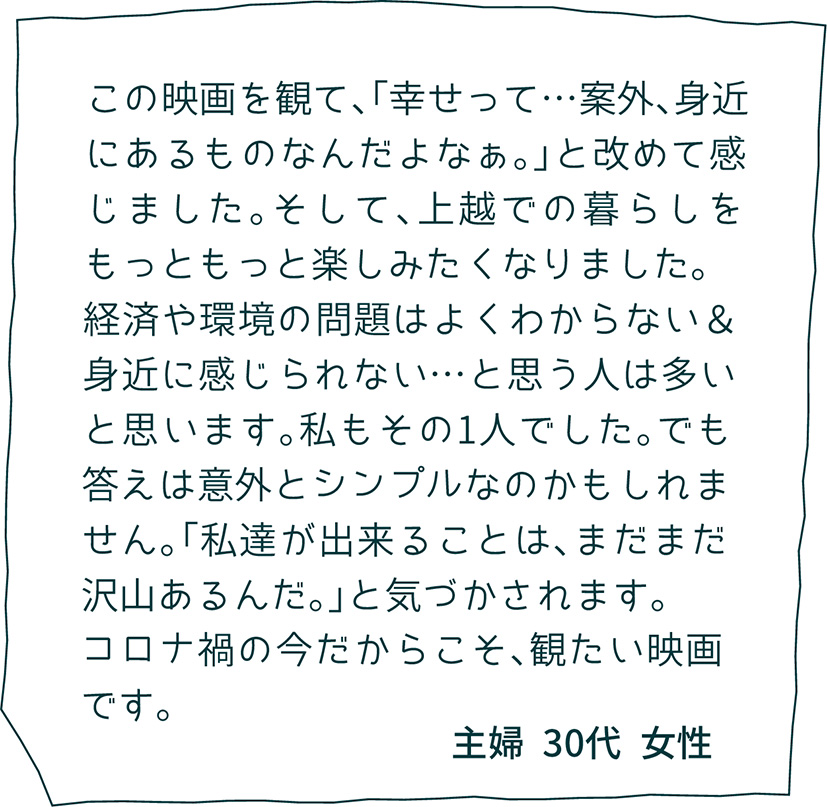 この映画を観て、「幸せって…案外、身近
にあるものなんだよなぁ。」と改めて感
じました。そして、上越での暮らしを
もっともっと楽しみたくなりました。
経済や環境の問題はよくわからない＆
身近に感じられない…と思う人は多い
と思います。私もその1人でした。でも
答えは意外とシンプルなのかもしれま
せん。「私達が出来ることは、まだまだ
沢山あるんだ。」と気づかされます。
コロナ禍の今だからこそ、観たい映画
です。
主婦 30代 女性